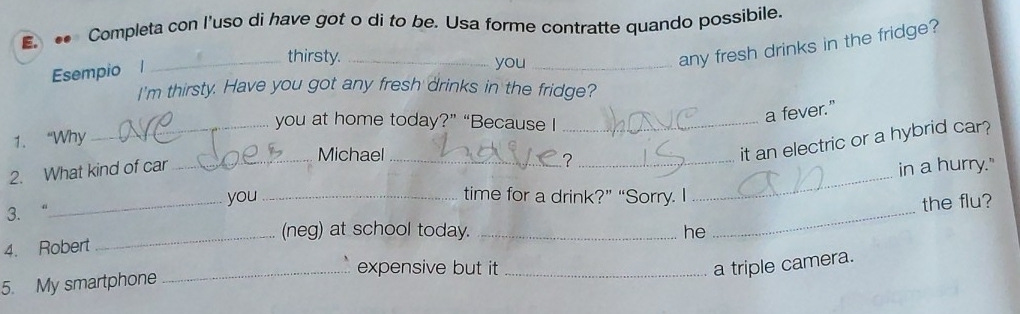 E. •• Completa con l'uso di have got o di to be. Usa forme contratte quando possibile.
Esempio I ______ thirsty. ______ you ______ any fresh drinks in the fridge?
I'm thirsty. Have you got any fresh drinks in the fridge?
1. "Why are you at home today?" "Because I have a fever."
2. What kind of car does Michael have? is it an electric or a hybrid car?
3. "______ you ______ time for a drink?" "Sorry. I an in a hurry."
4. Robert ______ (neg) at school today. ______ he ______ the flu?
5. My smartphone ______ expensive but it ______ a triple camera.